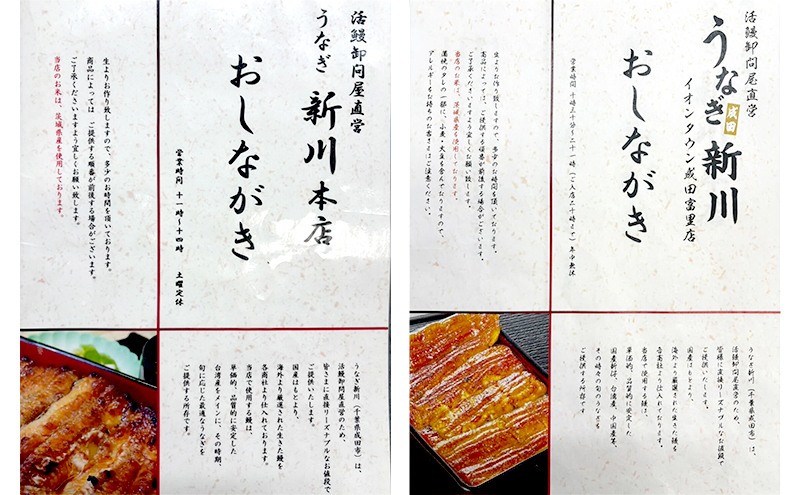 活鰻卸問屋直営
うなぎ 新川本店
おしながき
営業時間 十一時～十四時 土曜定休
生よりお作り致しますので、多少のお時間を頂いております。
商品によっては ご提供する順番が前後する場合がございます。
ご了承くださいますよう宜しくお願い致します。
当店のお米は、茨城県産を使用しております。
うなぎ新川（千葉県成田市）は、
活鰻卸問屋直営のため、
皆さまに直接リーズナブルなお値段で
ご提供いたします。
国産はもとより、
海外より厳選された生きた鰻を
各商社より仕入れております。
当店で使用する鰻は、
単価的、品質的に安定した
台湾産をメインに、その時期、
旬に応じた最適なうなぎを
ご提供する所存です。
活鰻卸問屋直営
うなぎ 成田 新川
イオンタウン成田富里店
おしながき
営業時間 十時三十分～二十一時（ご入店二十時まで）年中無休
生よりお作り致しますので、多少のお時間を頂いております。
商品によっては、ご提供する順番が前後する場合がございます。
ご了承くださいますよう宜しくお願い致します。
当店のお米は、茨城県産を使用しております。
蒲焼のタレの一部に、小麦・大豆を含んでおりますので、
アレルギーをお持ちのお客さまはご注意ください。
うなぎ新川（千葉県成田市）は、
活鰻卸問屋直営のため、
皆様に直接リーズナブルなお値段で
ご提供いたします。
国産はもとより、
海外より厳選された生きた鰻を
各商社より仕入れております。
当店で使用する鰻は、
単価的、品質的に安定した、
国産新仔、台湾産、中国産等、
その時々の旬のうなぎを
ご提供する所存です